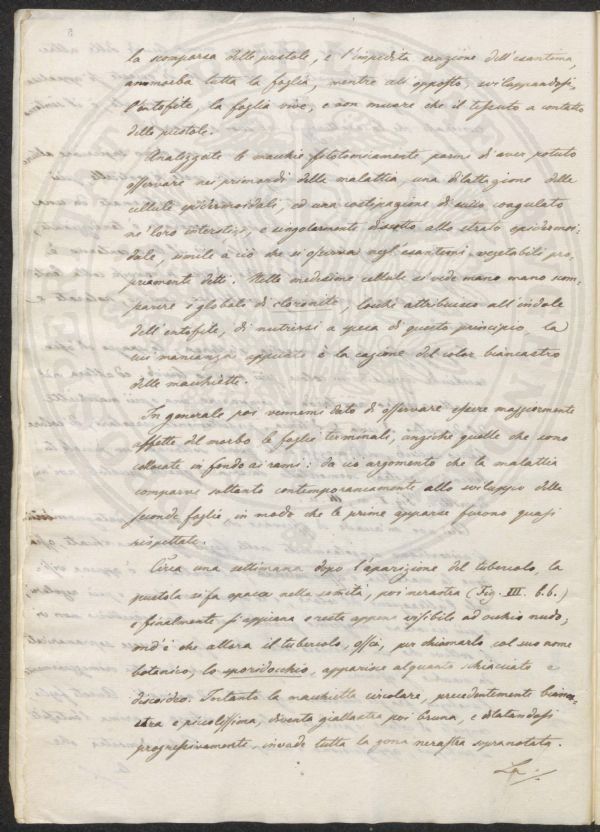 la scomparsa delle pustole, e l'impedita eruzione dell'esantema,
ammorba tutta la foglia, mentre all'opposto, sviluppandosi
l'entofite, la foglia vive, e non muore che il tessuto a contatto
delle pustole.
Analizzate le macchie fitotomicamente parmi di aver potuto
osservare nei primordi della malattia, una dilattazione delle
cellule epidermoidali, ed una costipazione di succo coagulato
ne' loro interstizj, e singolarmente dissotto allo strato epidermoi-
dale, simile a ciò che si osserva negl'esantemi vegetabili pro-
priamente detti. Nelle medesime cellule si vede mano mano scom-
parire i globuli di cloronite, locchè attribuisco all'indole
dell'entofite, di nutrirsi a spesa di questo principio, la
cui mancanza appunto è la cagione del color biancastro
delle macchiette.
In generale poi vennemi dato di osservare essere maggiormente
affette del morbo le foglie terminali, anzichè quelle che sono
collocate in fondo ai rami: da ciò argomento che la malattia
comparve soltanto contemporaneamente allo sviluppo delle
seconde foglie, in modo che le prime apparse furono quasi
rispettate.
Circa una settimana dopo l'aparizione del tubercolo, la
pustola si fa opaca nella sommità, poi nerastra (Fig. III. b.b.)
e finalmente si appiana e resta appena visibile ad occhio nudo;
ond'è che allora il tubercolo, ossia, per chiamarlo col suo nome
botanico, lo sporidocchio, apparisce alquanto schiacciato e
discoideo. Intanto la macchietta circolare, precedentemente bianca-
stra e piccolissima, diventa giallastra poi bruna, e dilatandosi
progressivamente, invade tutta la zona nerastra sopranotata.
La